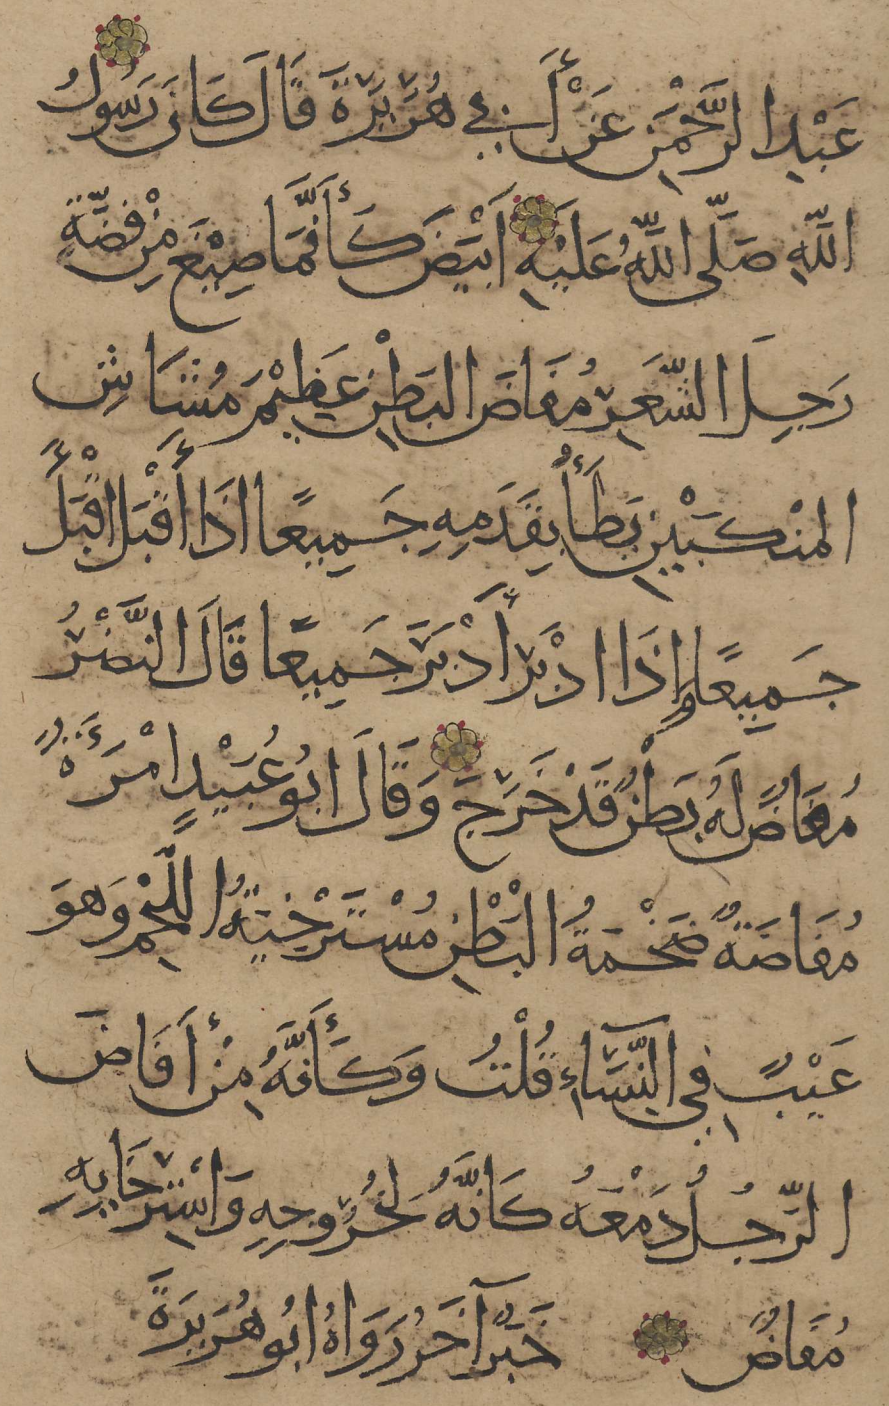 عَبْدِ الرَّحْمٰنِ عَنْ أَبِي هُرَيْرَةَ قَالَ كَانَ رَسُولُ
اللّٰهِ صَلَّى اللّٰهُ عَلَيْهِ اَبْيَضَ كَأَنَّمَا صِيْغَ مِنْ فِضَّةٍ
رَجِلَ الشَّعَرِ مُفَاضَ البَطْنِ عَظِيْمَ مُشَاشِ
المَنْكِبَيْنِ يَطَأُ بِقَدَمِهِ جَمِيعًا اذَا أَقْبَلَ اقْبَلَ
جَمِيعًا وَإِذَا ادْبَرَ أَدْبَرَ جَمِيعًا قَالَ النَّضْرُ
مُفَاضٌ لَهُ بَطْنٌ قَدْ خَرَجَ وَقَالَ ابُو عُبَيْدٍ امْرَءَةٌ
مُفَاضَةٌ ضَخْمَةُ الْبَطْنِ مُسْتَرْخِيَةُ اللَّحْمِ وَهوَ
عَيْبٌ فِي النِّسَآءِ قُلْتُ وَكَأَنَّهُ مِنْ أَفَاضَ
الرَّجُلُ دَمْعَهُ كَانَّهُ لِخُرُوجِهِ وَاسْتِرْخَايِهِ
مُفَاضٌ خَبَرٌ آخَرُ رَوَاهُ ابُو هُرَيرَةَ